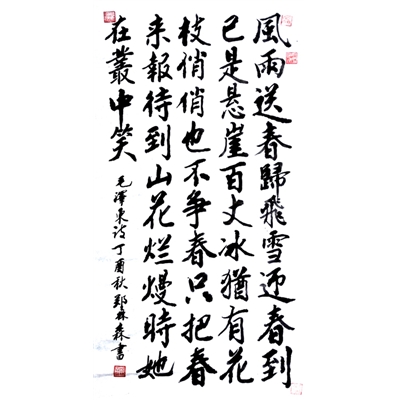 風雨送春歸飛雪迎春到
已是悬崖百丈冰猶有花
枝俏俏也不争春只把春
来報待到山花烂熳時她
在叢中笑
毛澤東诗丁酉秋郑林森書